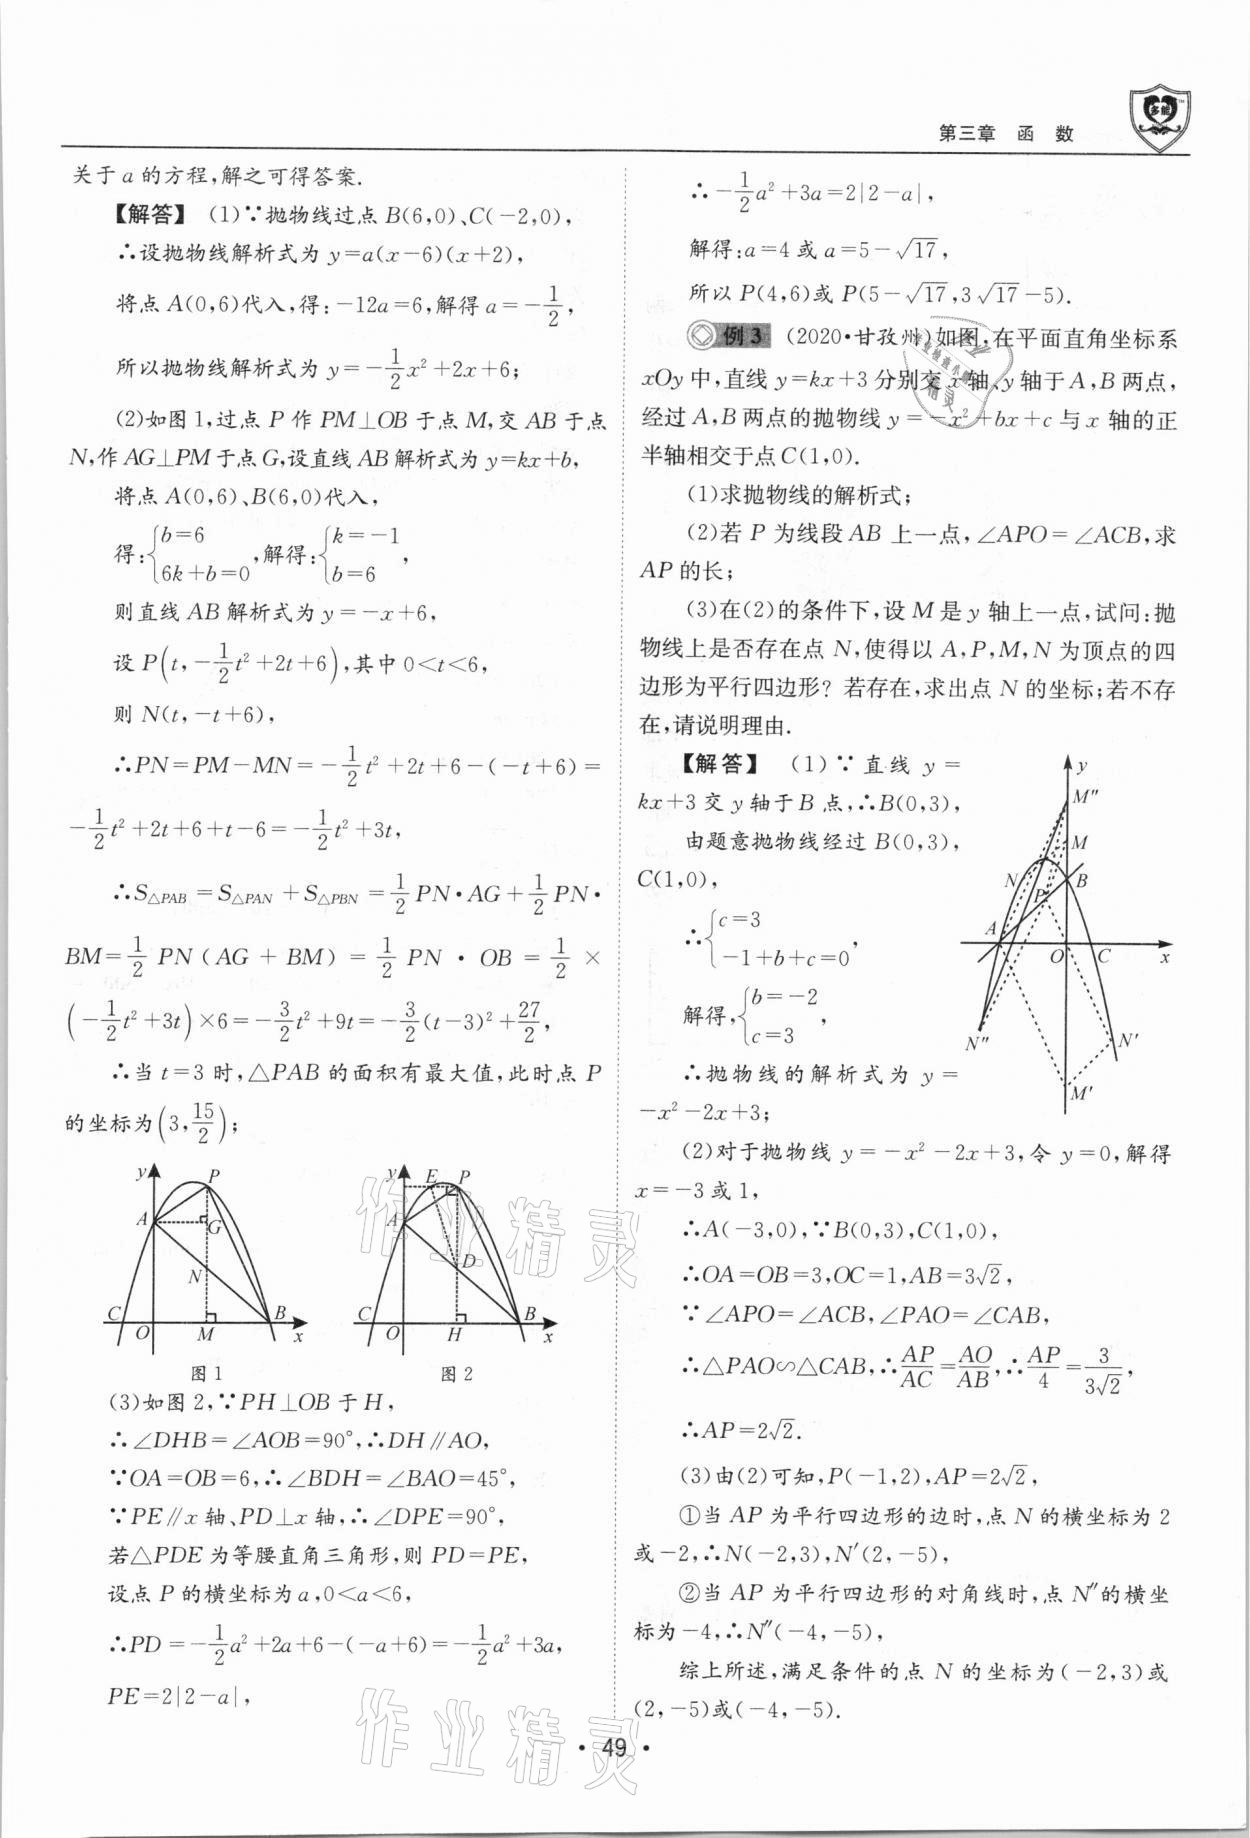 第三章 函 数
多能
关于a的方程,解之可得答案.
【解答】 (1)∵抛物线过点B(6,0)、C(-2,0),
∴设抛物线解析式为 y=a(x-6)(x+2),
将点A(0,6)代入,得:-12a=6,解得a=-1/2,
所以抛物线解析式为 y=-1/2x²+2x+6;
(2)如图1,过点 P 作 PM⊥OB于点M,交 AB于点
N,作AG⊥PM于点G,设直线AB解析式为y=kx+b,
将点A(0,6)、B(6,0)代入,
得:{b=6 6k+b=0,解得:{k=-1 b=6,
则直线AB解析式为y=-x+6,
设P(t,-1/2t²+2t+6),其中0<t<6,
则N(t,-t+6),
∴PN=PM-MN=-1/2t²+2t+6-(-t+6)=
-1/2t²+2t+6+t-6=-1/2t²+3t,
∴S△PAB=S△PAN+S△PBN=1/2PN·AG+1/2PN·
BM=1/2PN(AG+BM)=1/2PN·OB=1/2×
(-1/2t²+3t)×6=-3/2t²+9t=-3/2(t-3)²+27/2,
∴当t=3时,△PAB的面积有最大值,此时点 P
的坐标为(3,15/2);
y P A G N C O M B x
图1
y E P A D C O H B x
图2
(3)如图2,∵PH⊥OB于H,
∴∠DHB=∠AOB=90°,∴DH∥AO,
∵OA=OB=6,∴∠BDH=∠BAO=45°,
∵PE∥x轴、PD⊥x轴,∴∠DPE=90°,
若△PDE为等腰直角三角形,则PD=PE,
设点P的横坐标为a,0<a<6,
∴PD=-1/2a²+2a+6-(-a+6)=-1/2a²+3a,
PE=2|2-a|,
∴-1/2a²+3a=2|2-a|,
解得:a=4或a=5-√17,
所以P(4,6)或P(5-√17,3√17-5).
例3 (2020·甘孜州)如图,在平面直角坐标系
xOy中,直线y=kx+3分别交x轴、y轴于A,B两点,
经过A,B两点的抛物线y=-x²+bx+c与x轴的正
半轴相交于点C(1,0).
(1)求抛物线的解析式;
(2)若 P 为线段AB上一点,∠APO=∠ACB,求
AP的长;
(3)在(2)的条件下,设M是y轴上一点,试问:抛
物线上是否存在点N,使得以A,P,M,N为顶点的四
边形为平行四边形? 若存在,求出点N的坐标;若不存
在,请说明理由.
【解答】 (1)∵直线 y=
kx+3交y轴于B点,∴B(0,3),
由题意抛物线经过B(0,3),
C(1,0),
∴{c=3 -1+b+c=0,
解得,{b=-2 c=3,
∴抛物线的解析式为 y=
-x²-2x+3;
y M″ M N B P A O C x N″ N′ M′
(2)对于抛物线y=-x²-2x+3,令y=0,解得
x=-3或1,
∴A(-3,0),∵B(0,3),C(1,0),
∴OA=OB=3,OC=1,AB=3√2,
∵∠APO=∠ACB,∠PAO=∠CAB,
∴△PAO∽△CAB,∴AP/AC=AO/AB,∴AP/4=3/3√2,
∴AP=2√2.
(3)由(2)可知,P(-1,2),AP=2√2,
①当 AP 为平行四边形的边时,点 N 的横坐标为2
或-2,∴N(-2,3),N′(2,-5),
②当 AP 为平行四边形的对角线时,点 N″的横坐
标为-4,∴N″(-4,-5),
综上所述,满足条件的点 N 的坐标为(-2,3)或
(2,-5)或(-4,-5).
作业精灵
作业精灵
· 49 ·